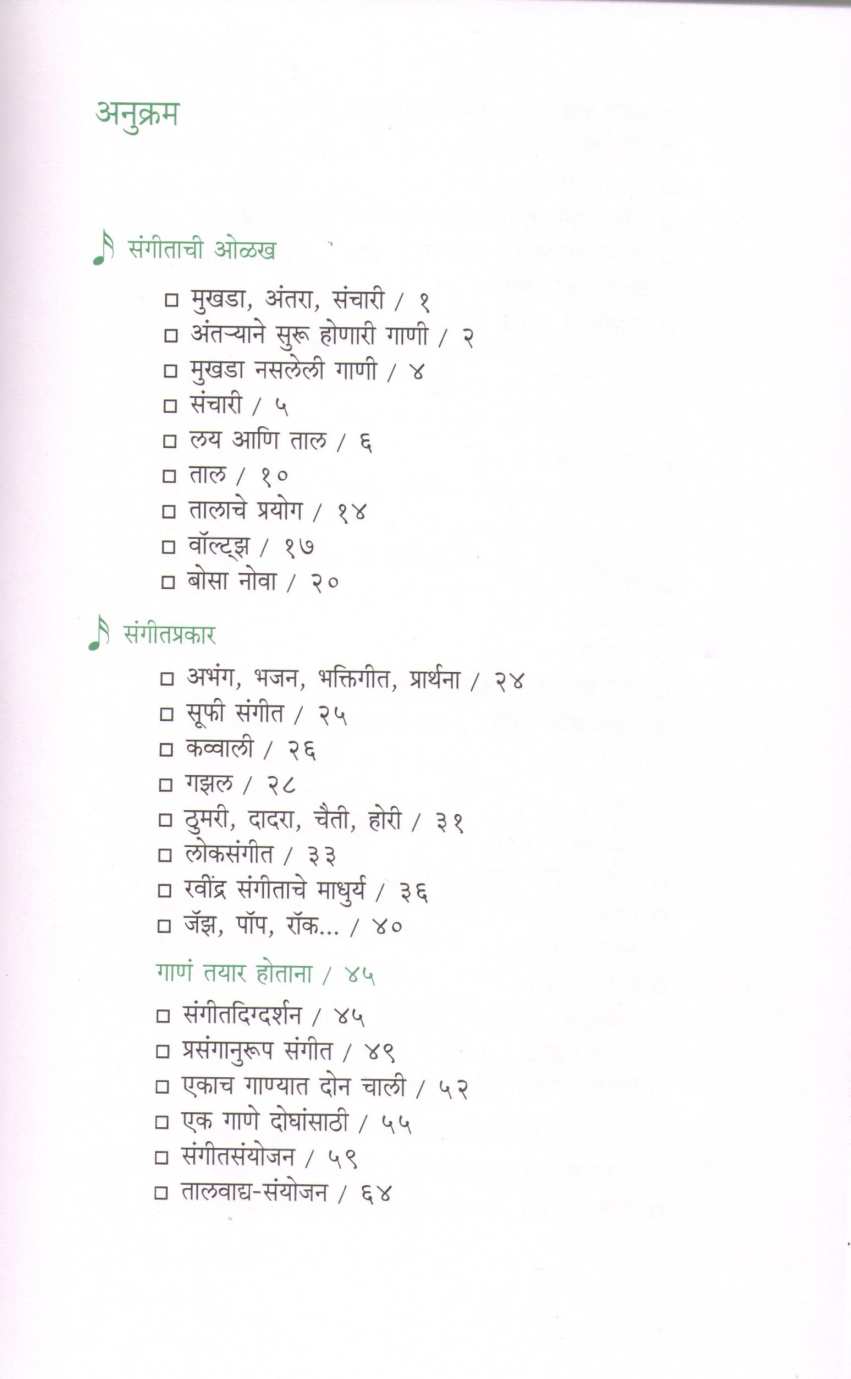 अनुक्रम
संगीताची ओळख
मुखडा, अंतरा, संचारी / १
अंतऱ्याने सुरू होणारी गाणी / २
मुखडा नसलेली गाणी / ४
संचारी / ५
लय आणि ताल / ६
ताल / १०
तालाचे प्रयोग / १४
वॉल्ट्झ / १७
बोसा नोवा / २०
संगीतप्रकार
अभंग, भजन, भक्तिगीत, प्रार्थना / २४
सूफी संगीत / २५
कव्वाली / २६
गझल / २८
ठुमरी, दादरा, चैती, होरी / ३१
लोकसंगीत / ३३
रवींद्र संगीताचे माधुर्य / ३६
जॅझ, पॉप, रॉक... / ४०
गाणं तयार होताना / ४५
संगीतदिग्दर्शन / ४५
प्रसंगानुरूप संगीत / ४९
एकाच गाण्यात दोन चाली / ५२
एक गाणे दोघांसाठी / ५५
संगीतसंयोजन / ५९
तालवाद्य-संयोजन / ६४